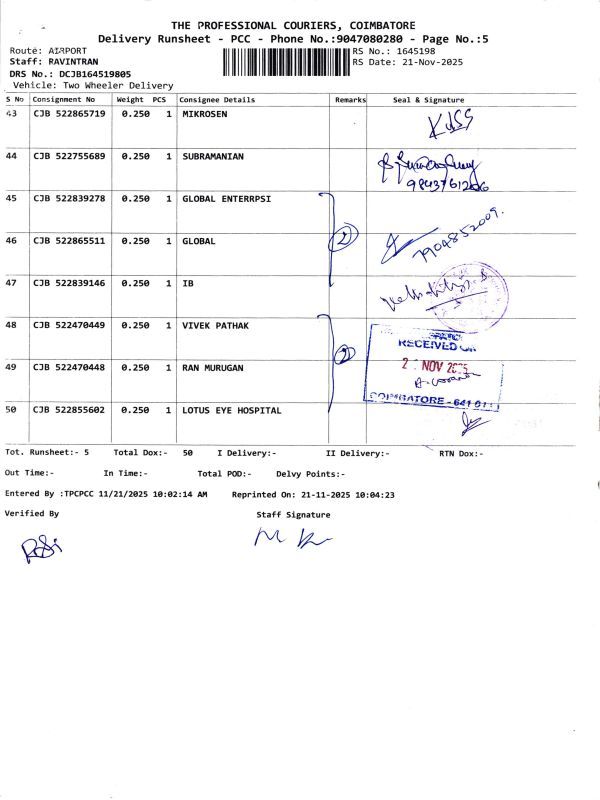 THE PROFESSIONAL COURIERS, COIMBATORE
Delivery Runsheet - PCC - Phone No.:9047080280 - Page No.:5
Route: AIRPORT
RS No.: 1645198
Staff: RAVINTRAN
RS Date: 21-Nov-2025
DRS No.: DCJB164519805
Vehicle: Two Wheeler Delivery
S No Consignment No Weight PCS Consignee Details Remarks Seal & Signature
43 CJB 522865719 0.250 1 MIKROSEN
44 CJB 522755689 0.250 1 SUBRAMANIAN
9843761206
45 CJB 522839278 0.250 1 GLOBAL ENTERRPSI
46 CJB 522865511 0.250 1 GLOBAL 2 7904852009.
47 CJB 522839146 0.250 1 IB
48 CJB 522470449 0.250 1 VIVEK PATHAK
RECEIVED ON
2
49 CJB 522470448 0.250 1 RAN MURUGAN
NOV 2025
COIMBATORE - 641 014
50 CJB 522855602 0.250 1 LOTUS EYE HOSPITAL
Tot. Runsheet:- 5 Total Dox:- 50 I Delivery:- II Delivery:- RTN Dox:-
Out Time:- In Time:- Total POD:- Delvy Points:-
Entered By :TPCPCC 11/21/2025 10:02:14 AM Reprinted On: 21-11-2025 10:04:23
Verified By Staff Signature